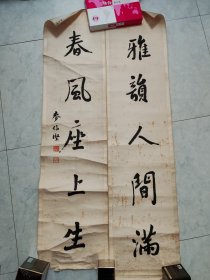 雅韻人間滿
春風座上生